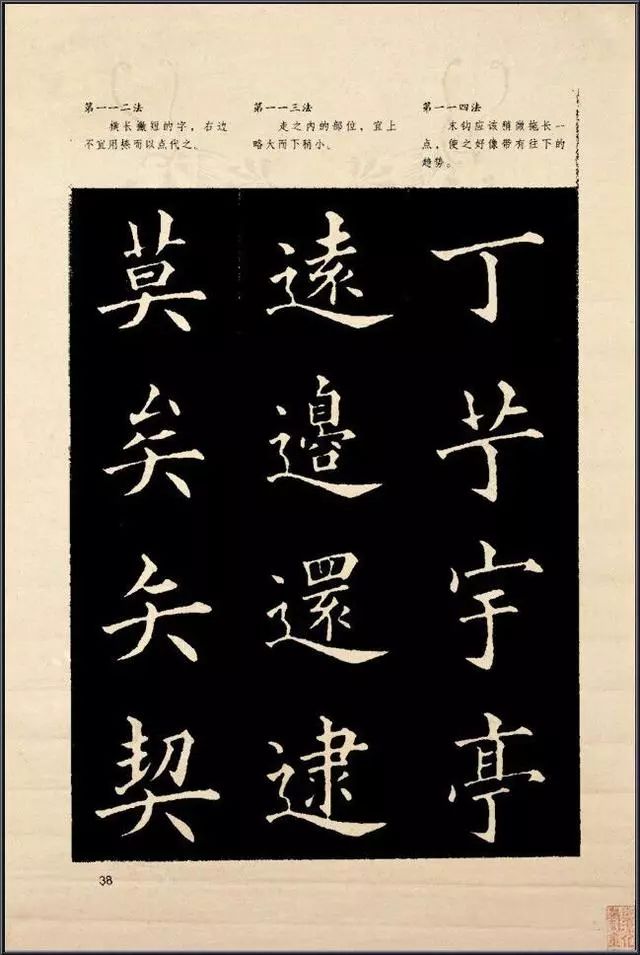 第一一二法
横长撇短的字，右边
不宜用捺而以点代之。
第一一三法
走之内的部位，宜上
略大而下稍小。
第一一四法
末钩应该稍微拖长一
点，使之好像带有往下的
趋势。
莫
矣
矢
契
遠
邊
還
逮
丁
宇
亭
38